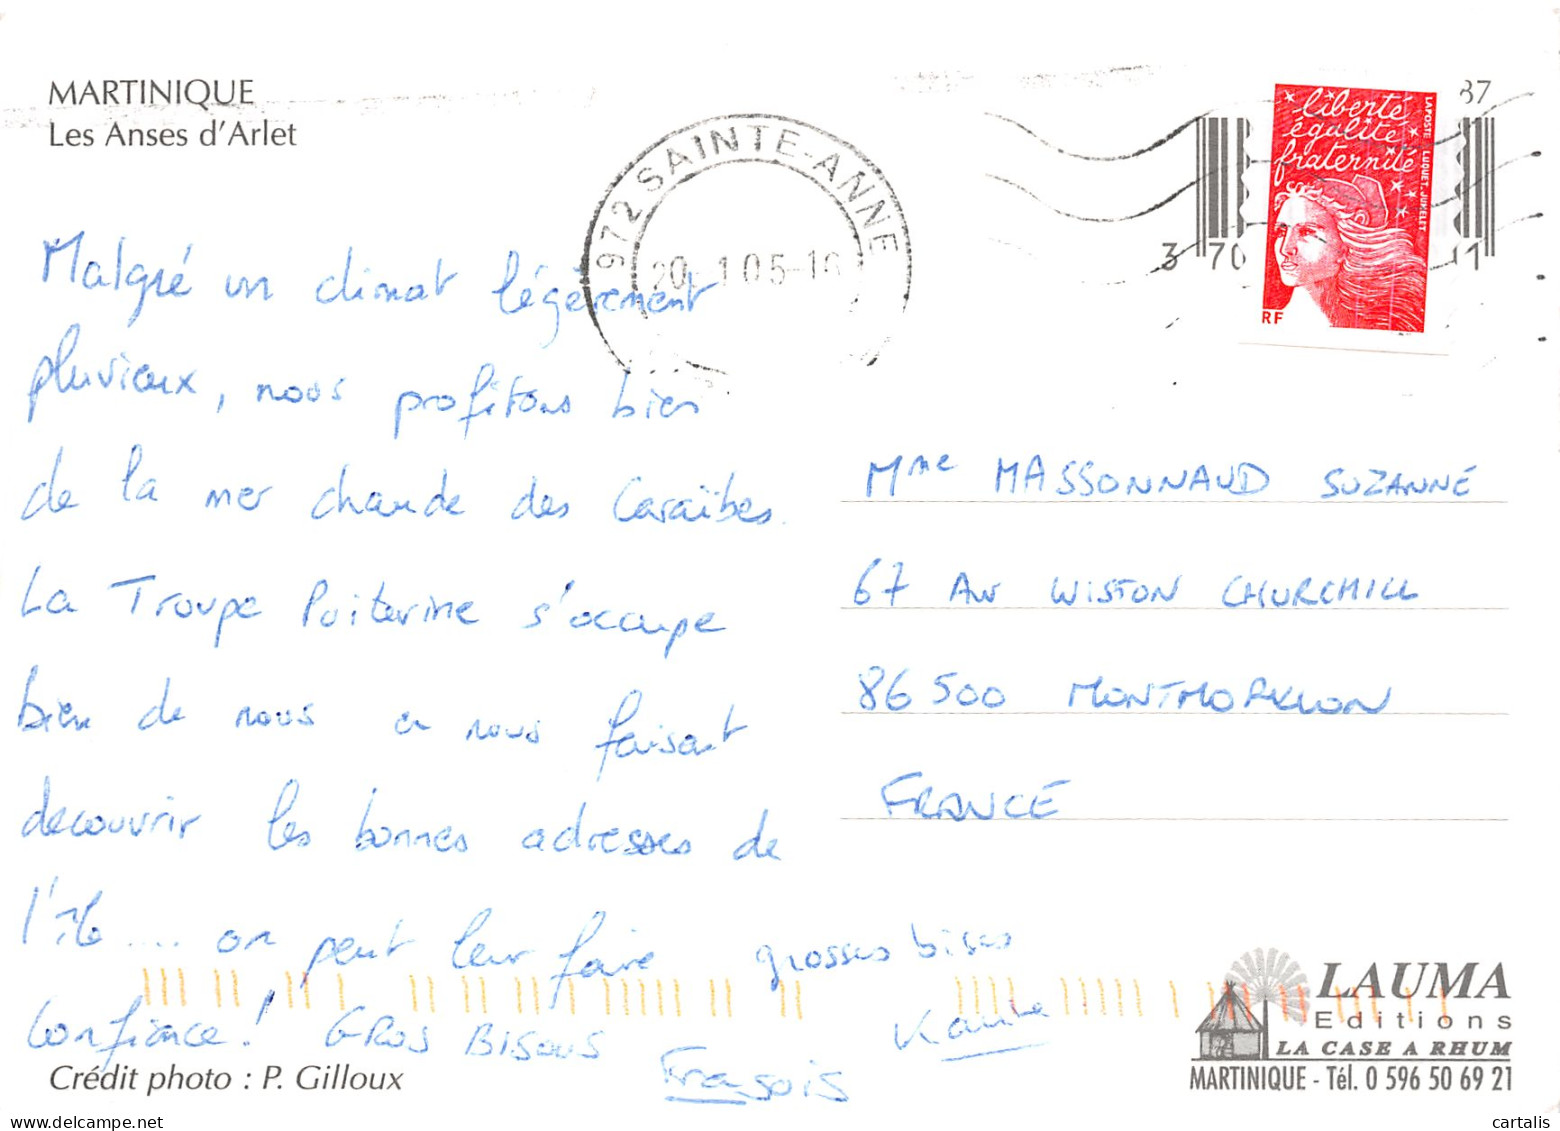 MARTINIQUE
Les Anses d'Arlet
972 SAINTE-ANNE
20 105-1
liberté
égalité
fraternité
LA POSTE LUQUET-JUMELET
RF
87
3 70
1
Malgré un climat légèrement
pluvieux, nous profitons bien
de la mer chaude des Caraïbes.
La Troupe Poitevine s'occupe
bien de nous en nous faisant
decouvrir les bonnes adresses de
l'île .... on peut leur faire
confiance! GROS BISOUS
grosses bises
Mme MASSONNAUD SUZANNE
67 Av WISTON CHURCHILL
86500 MONTMORILLON
FRANCE
Crédit photo : P. Gilloux
LAUMA
Editions
LA CASE A RHUM
MARTINIQUE - Tél. 0 596 50 69 21
cartalis